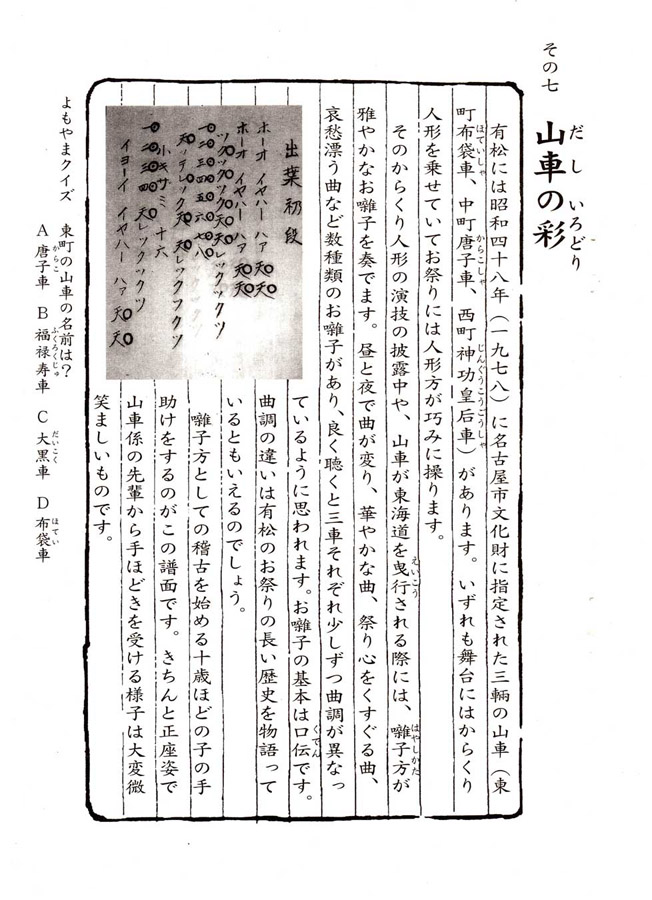 その七
だし いろどり
山車の彩
有松には昭和四十八年（一九七八）に名古屋市文化財に指定された三輛の山車（東
ほていしゃ からこしゃ じんぐうこうごうしゃ
町布袋車、中町唐子車、西町神功皇后車）があります。いずれも舞台にはからくり
人形を乗せていてお祭りには人形方が巧みに操ります。
えいこう はやしかた
そのからくり人形の演技の披露中や、山車が東海道を曳行される際には、囃子方が
雅やかなお囃子を奏でます。昼と夜で曲が変り、華やかな曲、祭り心をくすぐる曲、
哀愁漂う曲など数種類のお囃子があり、良く聴くと三車それぞれ少しずつ曲調が異なっ
くでん
ているように思われます。お囃子の基本は口伝です。
曲調の違いは有松のお祭りの長い歴史を物語って
いるともいえるのでしょう。
囃子方としての稽古を始める十歳ほどの子の手
助けをするのがこの譜面です。きちんと正座姿で
山車係の先輩から手ほどきを受ける様子は大変微
笑ましいものです。
出葉初段
ホーオ イヤハー ハァ
ホーオ イヤハー ハァ
小キザミ 十六
イヨーイ イヤハー ハァ
よもやまクイズ 東町の山車の名前は？
からこ ふくろくじゅ だいこく ほてい
A 唐子車 B 福禄寿車 C 大黒車 D 布袋車